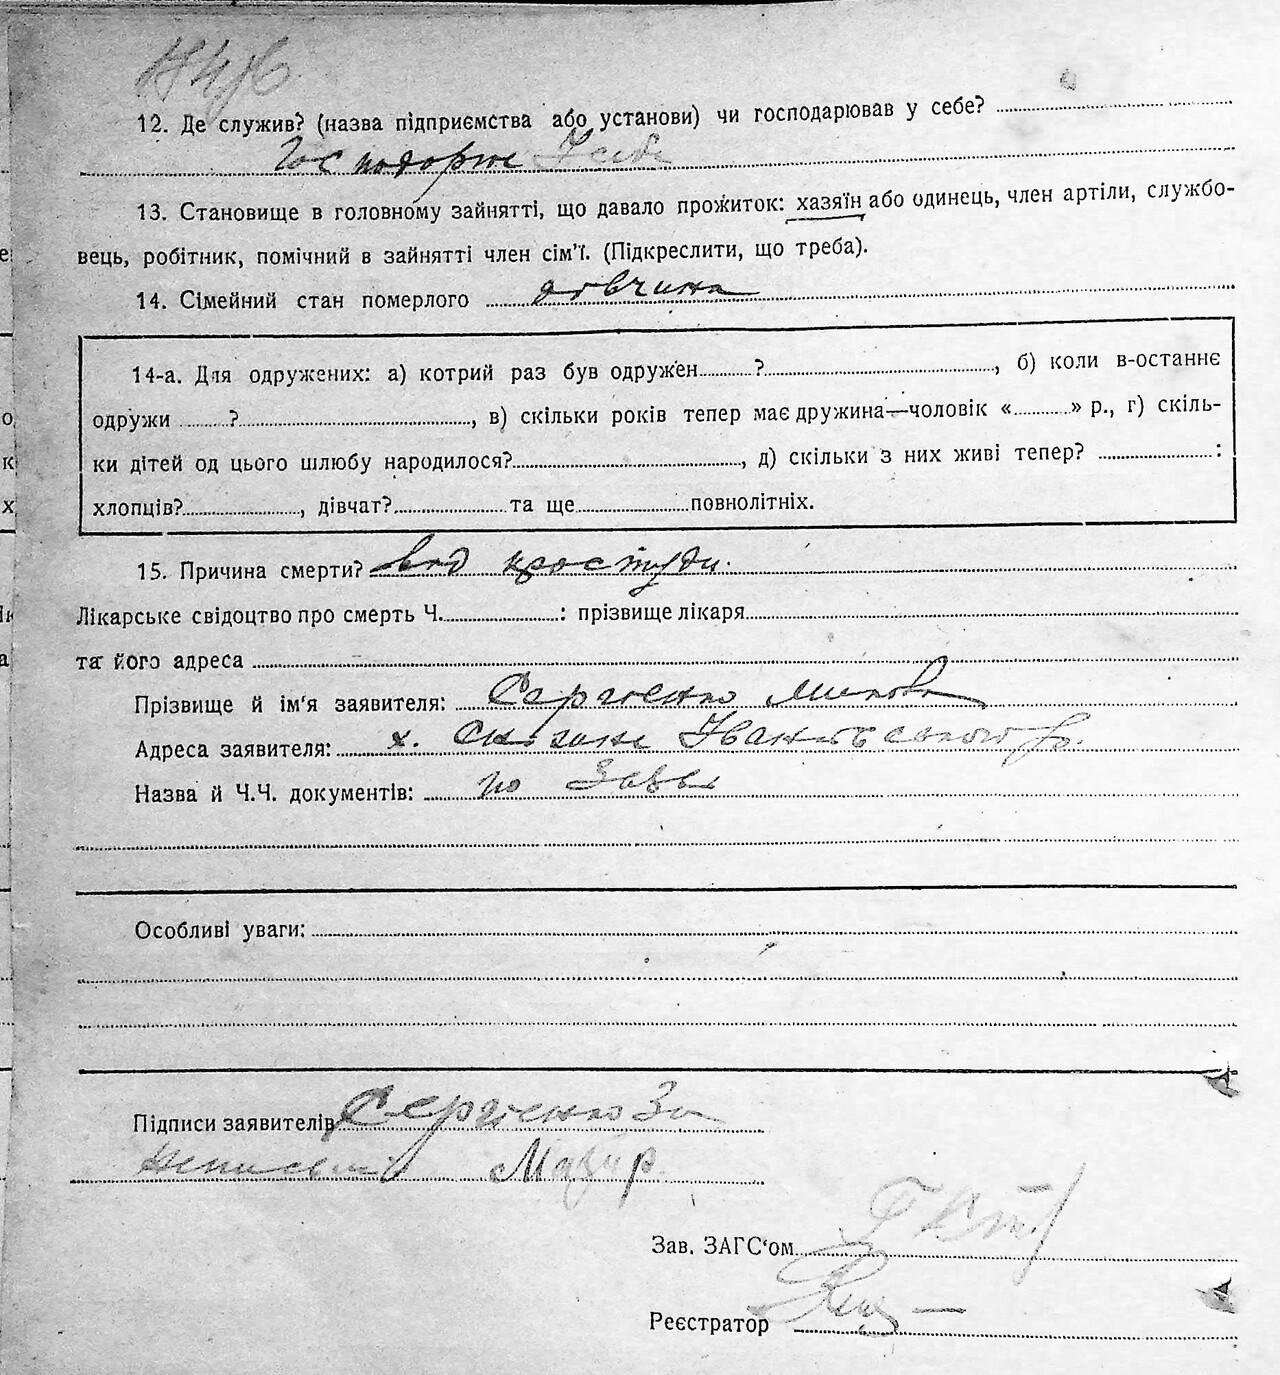 12. Де служив? (назва підприємства або установи) чи господарював у себе?
Господорює У себе
13. Становище в головному зайнятті, що давало прожиток: хазяїн або одинець, член артіли, службо-
вець, робітник, помічний в зайнятті член сім'ї. (Підкреслити, що треба).
14. Сімейний стан померлого дівчина
14-а. Для одружених: а) котрий раз був одружен ?, б) коли в-останнє
одружи ?, в) скільки років тепер має дружина—чоловік « » р., г) скіль-
ки дітей од цього шлюбу народилося?, д) скільки з них живі тепер? :
хлопців?, дівчат? та ще повнолітніх.
15. Причина смерти? від простуди.
Лікарське свідоцтво про смерть Ч. : прізвище лікаря
та його адреса
Прізвище й ім'я заявителя: Сергієнко
Адреса заявителя: х. р.
Назва й Ч.Ч. документів: по
Особливі уваги:
Підписи заявителів Сергієнко За
Зав. ЗАГС'ом
Реєстратор